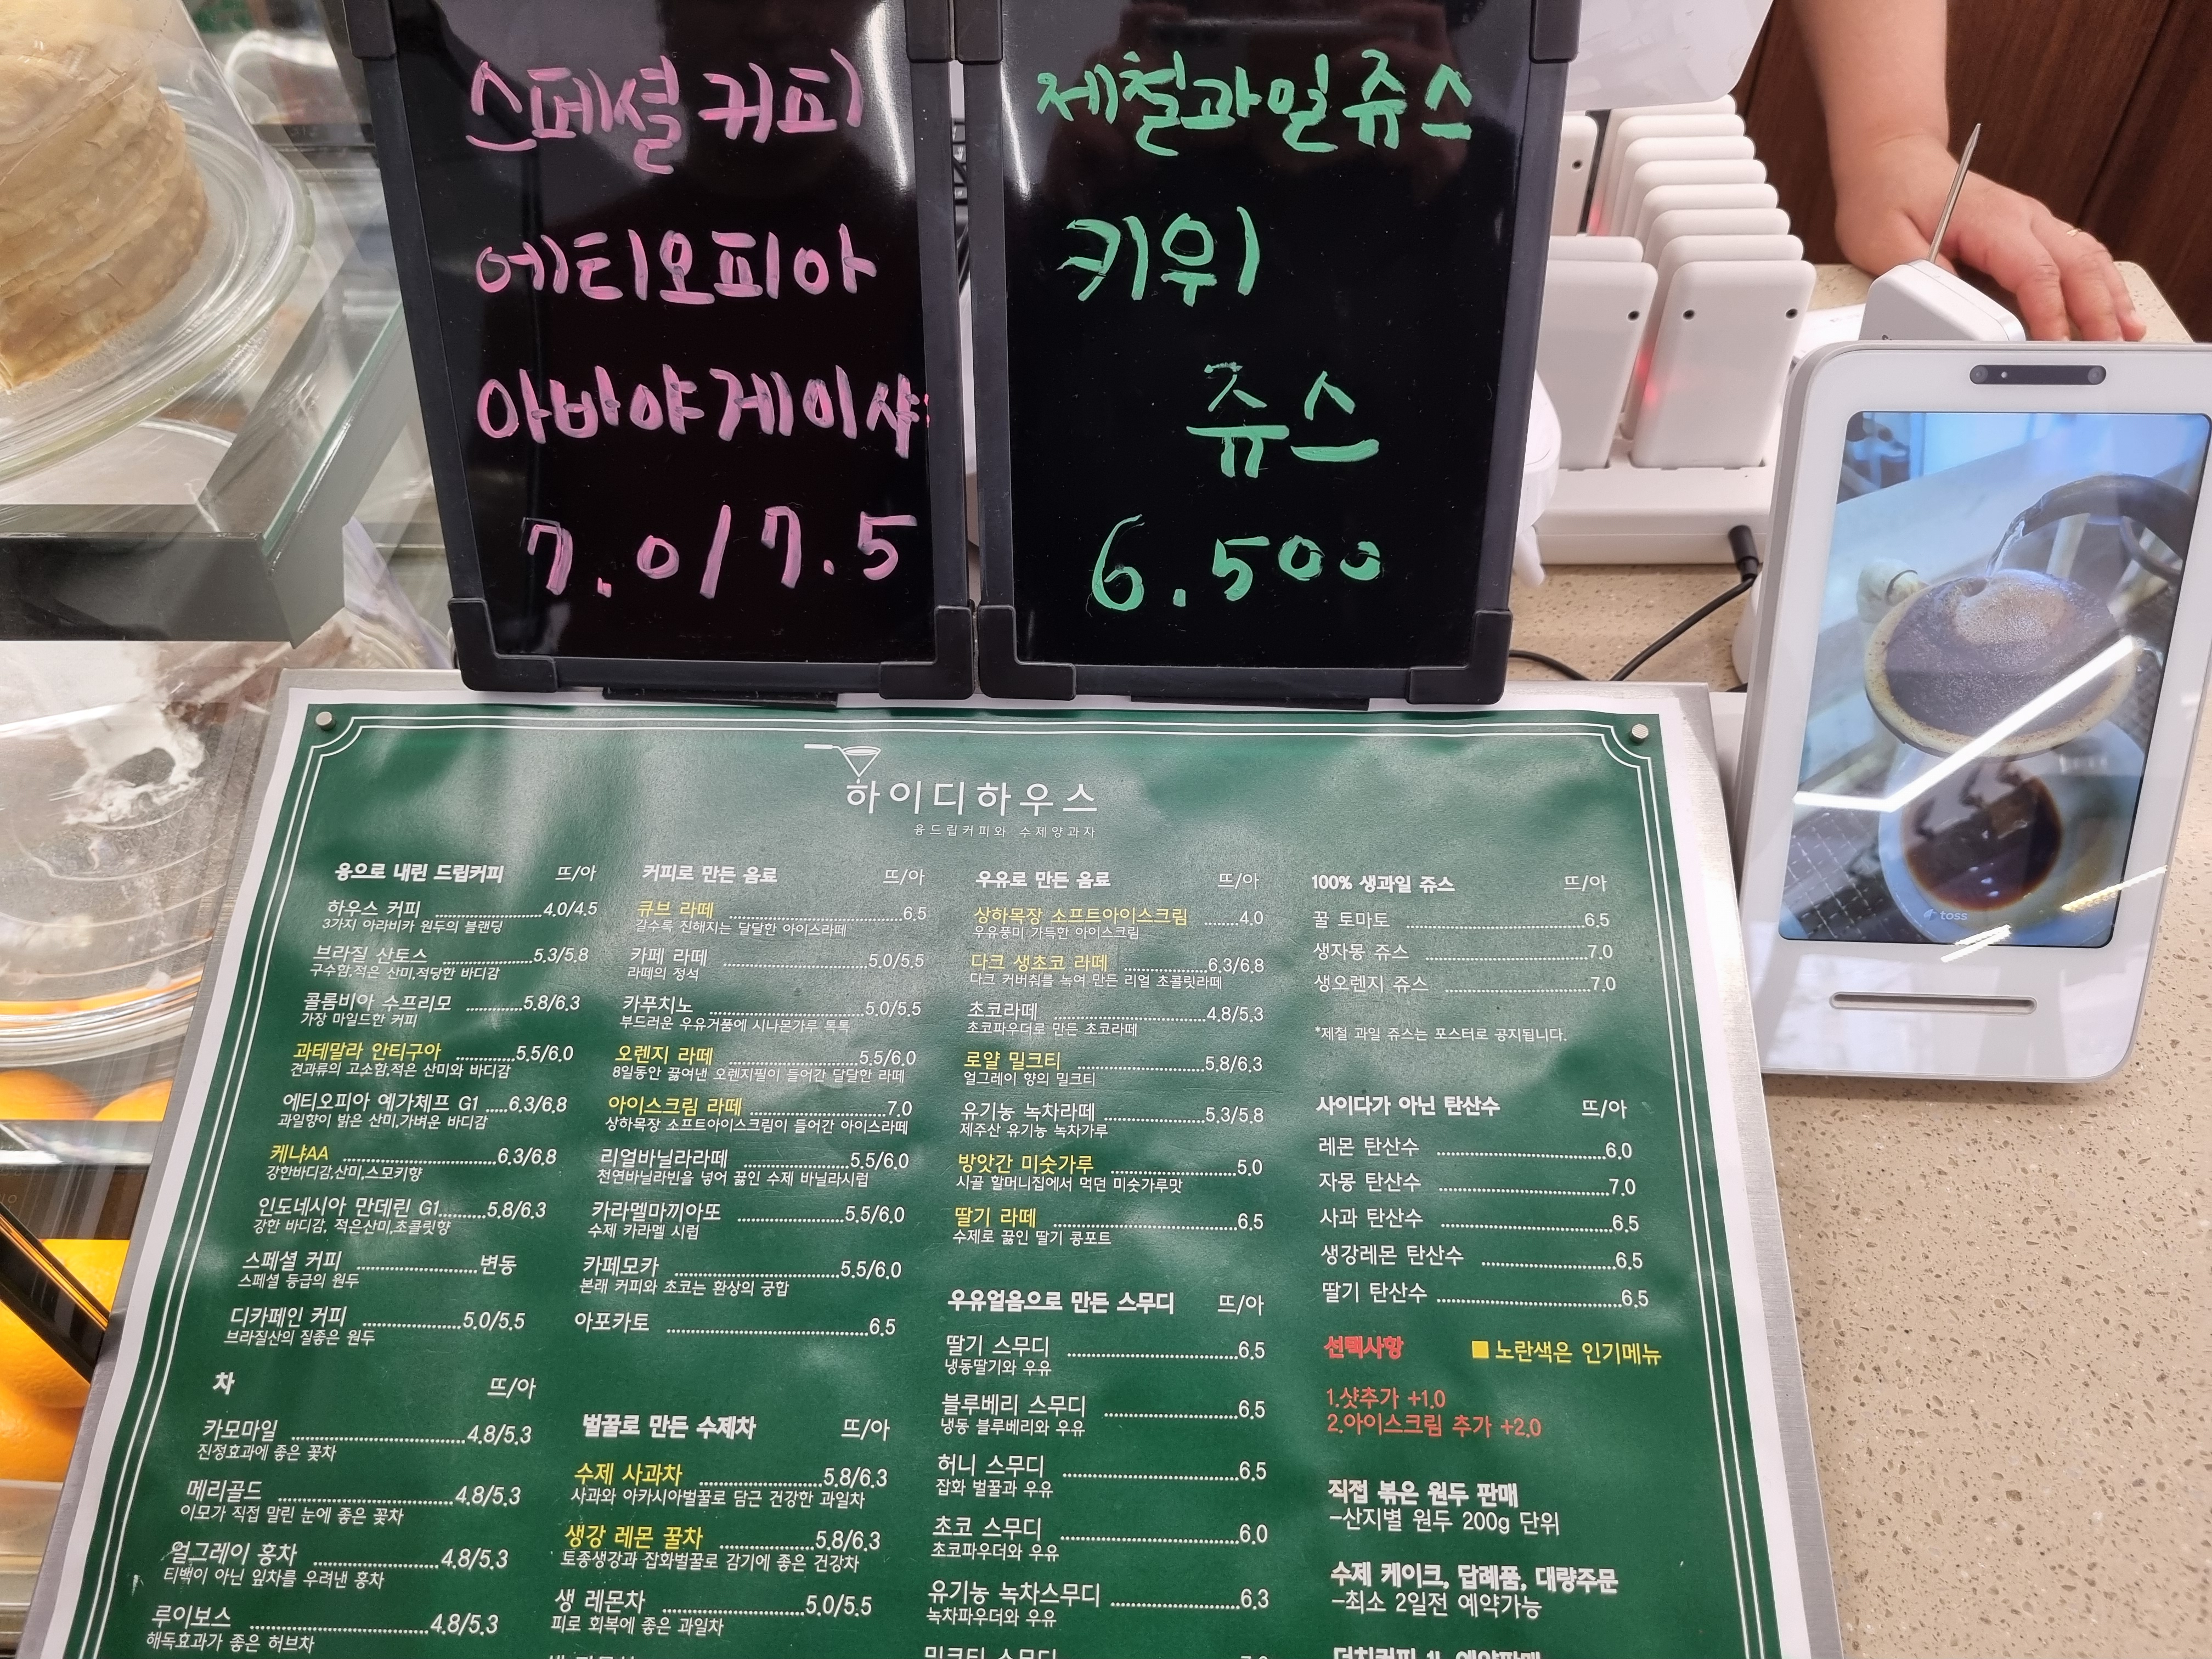 스페셜 커피
에티오피아
아바야게이샤
7.0/7.5
제철과일쥬스
키위
쥬스
6.500
toss
하이디하우스
융드립커피와 수제양과자
융으로 내린 드립커피 뜨/아
하우스 커피 4.0/4.5
3가지 아라비카 원두의 블랜딩
브라질 산토스 5.3/5.8
구수함,적은 산미,적당한 바디감
콜롬비아 수프리모 5.8/6.3
가장 마일드한 커피
과테말라 안티구아 5.5/6.0
견과류의 고소함,적은 산미와 바디감
에티오피아 예가체프 G1 6.3/6.8
과일향이 밝은 산미,가벼운 바디감
케냐AA 6.3/6.8
강한바디감,산미,스모키향
인도네시아 만데린 G1 5.8/6.3
강한 바디감, 적은산미,초콜릿향
스페셜 커피 변동
스페셜 등급의 원두
디카페인 커피 5.0/5.5
브라질산의 질좋은 원두
차 뜨/아
카모마일 4.8/5.3
진정효과에 좋은 꽃차
메리골드 4.8/5.3
이모가 직접 말린 눈에 좋은 꽃차
얼그레이 홍차 4.8/5.3
티백이 아닌 잎차를 우려낸 홍차
루이보스 4.8/5.3
해독효과가 좋은 허브차
커피로 만든 음료 뜨/아
큐브 라떼 6.5
갈수록 진해지는 달달한 아이스라떼
카페 라떼 5.0/5.5
라떼의 정석
카푸치노 5.0/5.5
부드러운 우유거품에 시나몬가루 톡톡
오렌지 라떼 5.5/6.0
8일동안 끓여낸 오렌지필이 들어간 달달한 라떼
아이스크림 라떼 7.0
상하목장 소프트아이스크림이 들어간 아이스라떼
리얼바닐라라떼 5.5/6.0
천연바닐라빈을 넣어 끓인 수제 바닐라시럽
카라멜마끼아또 5.5/6.0
수제 카라멜 시럽
카페모카 5.5/6.0
본래 커피와 초코는 환상의 궁합
아포카토 6.5
벌꿀로 만든 수제차 뜨/아
수제 사과차 5.8/6.3
사과와 아카시아벌꿀로 담근 건강한 과일차
생강 레몬 꿀차 5.8/6.3
토종생강과 잡화벌꿀로 감기에 좋은 건강차
생 레몬차 5.0/5.5
피로 회복에 좋은 과일차
우유로 만든 음료 뜨/아
상하목장 소프트아이스크림 4.0
우유풍미 가득한 아이스크림
다크 생초코 라떼 6.3/6.8
다크 커버춰를 녹여 만든 리얼 초콜릿라떼
초코라떼 4.8/5.3
초코파우더로 만든 초코라떼
로얄 밀크티 5.8/6.3
얼그레이 향의 밀크티
유기농 녹차라떼 5.3/5.8
제주산 유기농 녹차가루
방앗간 미숫가루 5.0
시골 할머니집에서 먹던 미숫가루맛
딸기 라떼 6.5
수제로 끓인 딸기 콩포트
우유얼음으로 만든 스무디 뜨/아
딸기 스무디 6.5
냉동딸기와 우유
블루베리 스무디 6.5
냉동 블루베리와 우유
허니 스무디 6.5
잡화 벌꿀과 우유
초코 스무디 6.0
초코파우더와 우유
유기농 녹차스무디 6.3
녹차파우더와 우유
밀크티 스무디
100% 생과일 쥬스 뜨/아
꿀 토마토 6.5
생자몽 쥬스 7.0
생오렌지 쥬스 7.0
*제철 과일 쥬스는 포스터로 공지됩니다.
사이다가 아닌 탄산수 뜨/아
레몬 탄산수 6.0
자몽 탄산수 7.0
사과 탄산수 6.5
생강레몬 탄산수 6.5
딸기 탄산수 6.5
선택사항 노란색은 인기메뉴
1.샷추가 +1.0
2.아이스크림 추가 +2.0
직접 볶은 원두 판매
-산지별 원두 200g 단위
수제 케이크, 답례품, 대량주문
-최소 2일전 예약가능
더치커피 1L 예약판매